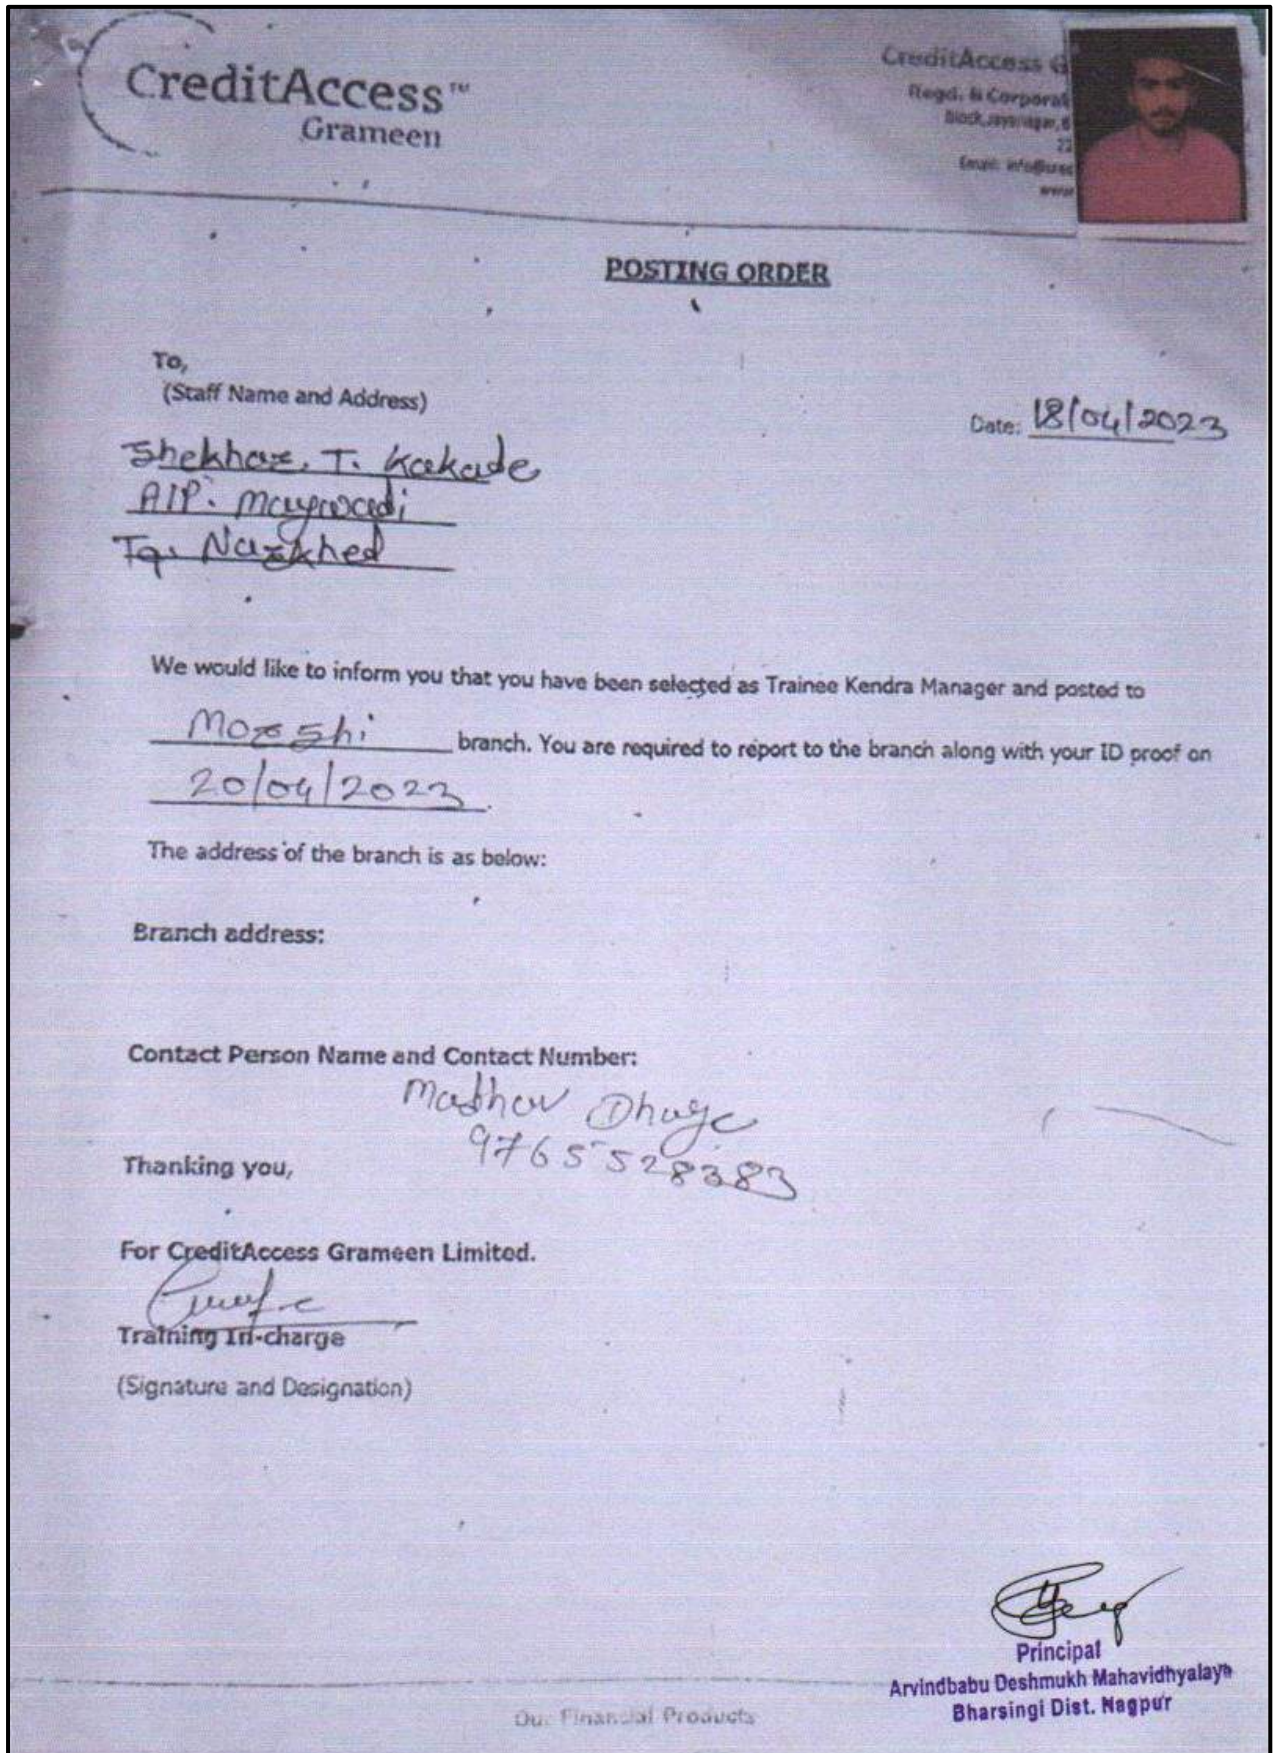 CreditAccess™
Grameen
CreditAccess G
Regd. & Corporat
Block, Jayanagar, B
22
Email: info@
www
POSTING ORDER
To,
(Staff Name and Address)
Date: 18/04/2023
Shekhar. T. Kakade
A/P. Maywadi
Tq. Narkhed
We would like to inform you that you have been selected as Trainee Kendra Manager and posted to
Morshi branch. You are required to report to the branch along with your ID proof on
20/04/2023.
The address of the branch is as below:
Branch address:
Contact Person Name and Contact Number:
Madhav Dhage
9765528383
Thanking you,
For CreditAccess Grameen Limited.
Training In-charge
(Signature and Designation)
Principal
Arvindbabu Deshmukh Mahavidhyalaya
Bharsingi Dist. Nagpur
Our Financial Products